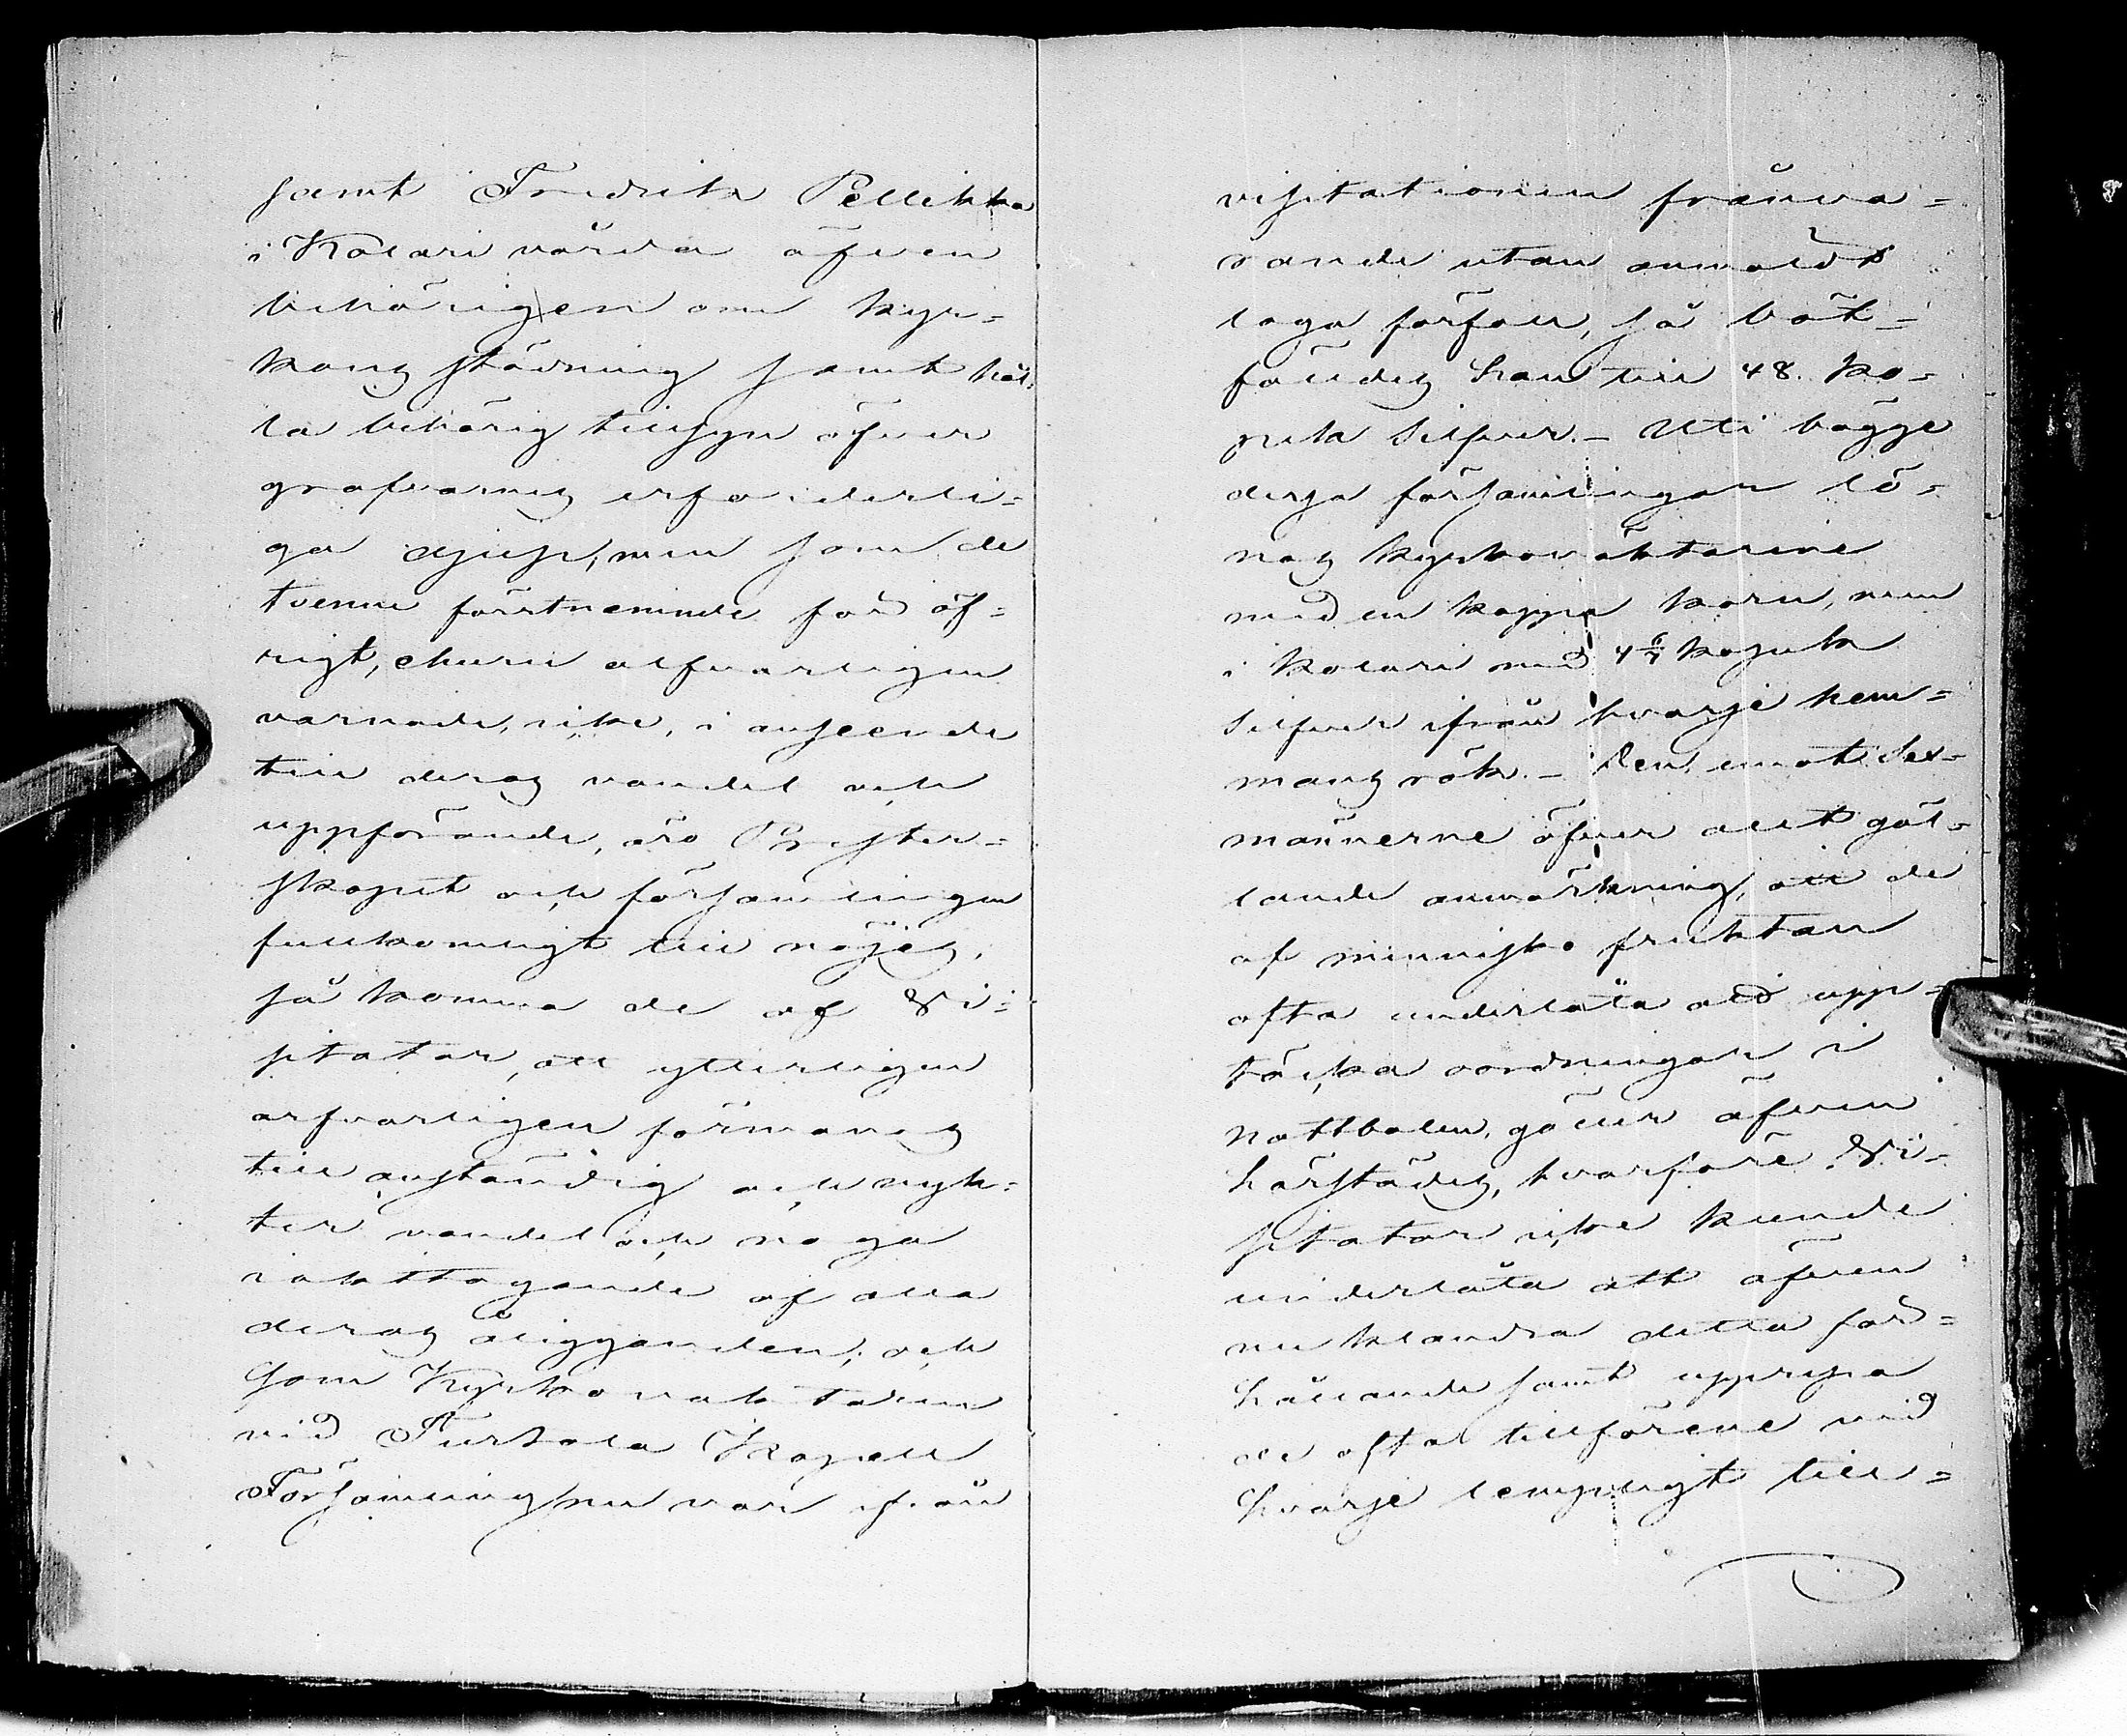 samt Fredrik Pellikka
i Kolari vårda äfven
behörigen om kyr=
kans städning samt hål=
la behörig tillsyn öfver
grafvarnes erforderli=
ga djup, men som de
tvenne förstnemnde för öf=
rigt, ehuru alfvarligen
varnade, icke, i anseende
till deras vandel och
uppförande, äro Prester=
skapet och församlingen
fullkomligt till nöjes,
så komma de af Vi=
sitator, att ytterligen
arfvarligen förmanas
till anständig och nyk=
ter vandel och noga
iakttagande af alla
deras åligganden; och
som Kyrkovaktaren
vid Turtola Kapell
Församling nu var ifrån
visitationen frånva=
rande utan anmäldt
laga förfall, så böt=
fälldes han till 48. ko=
pek Silfver. – Uti bägge
dessa församlingar lö=
nas kyrkoväktarene
med en kappa korn, men
i Kolari med 4 6/7 kopek
Silfver ifrån hvarje hem=
mans rök. – Den emot Sex=
männerne öfver allt gäl=
lande anmärkning, att de
af mennisko fruktan
ofta underlåta att upp=
täcka oordningar i
Nattbalen, gäller äfven
härstädes, hvarföre Vi=
sitator icke kunde
underlåta att äfven
nu klandra detta för=
hållande samt upprepa
de ofta tillförene vid
hvarje lempligt till=